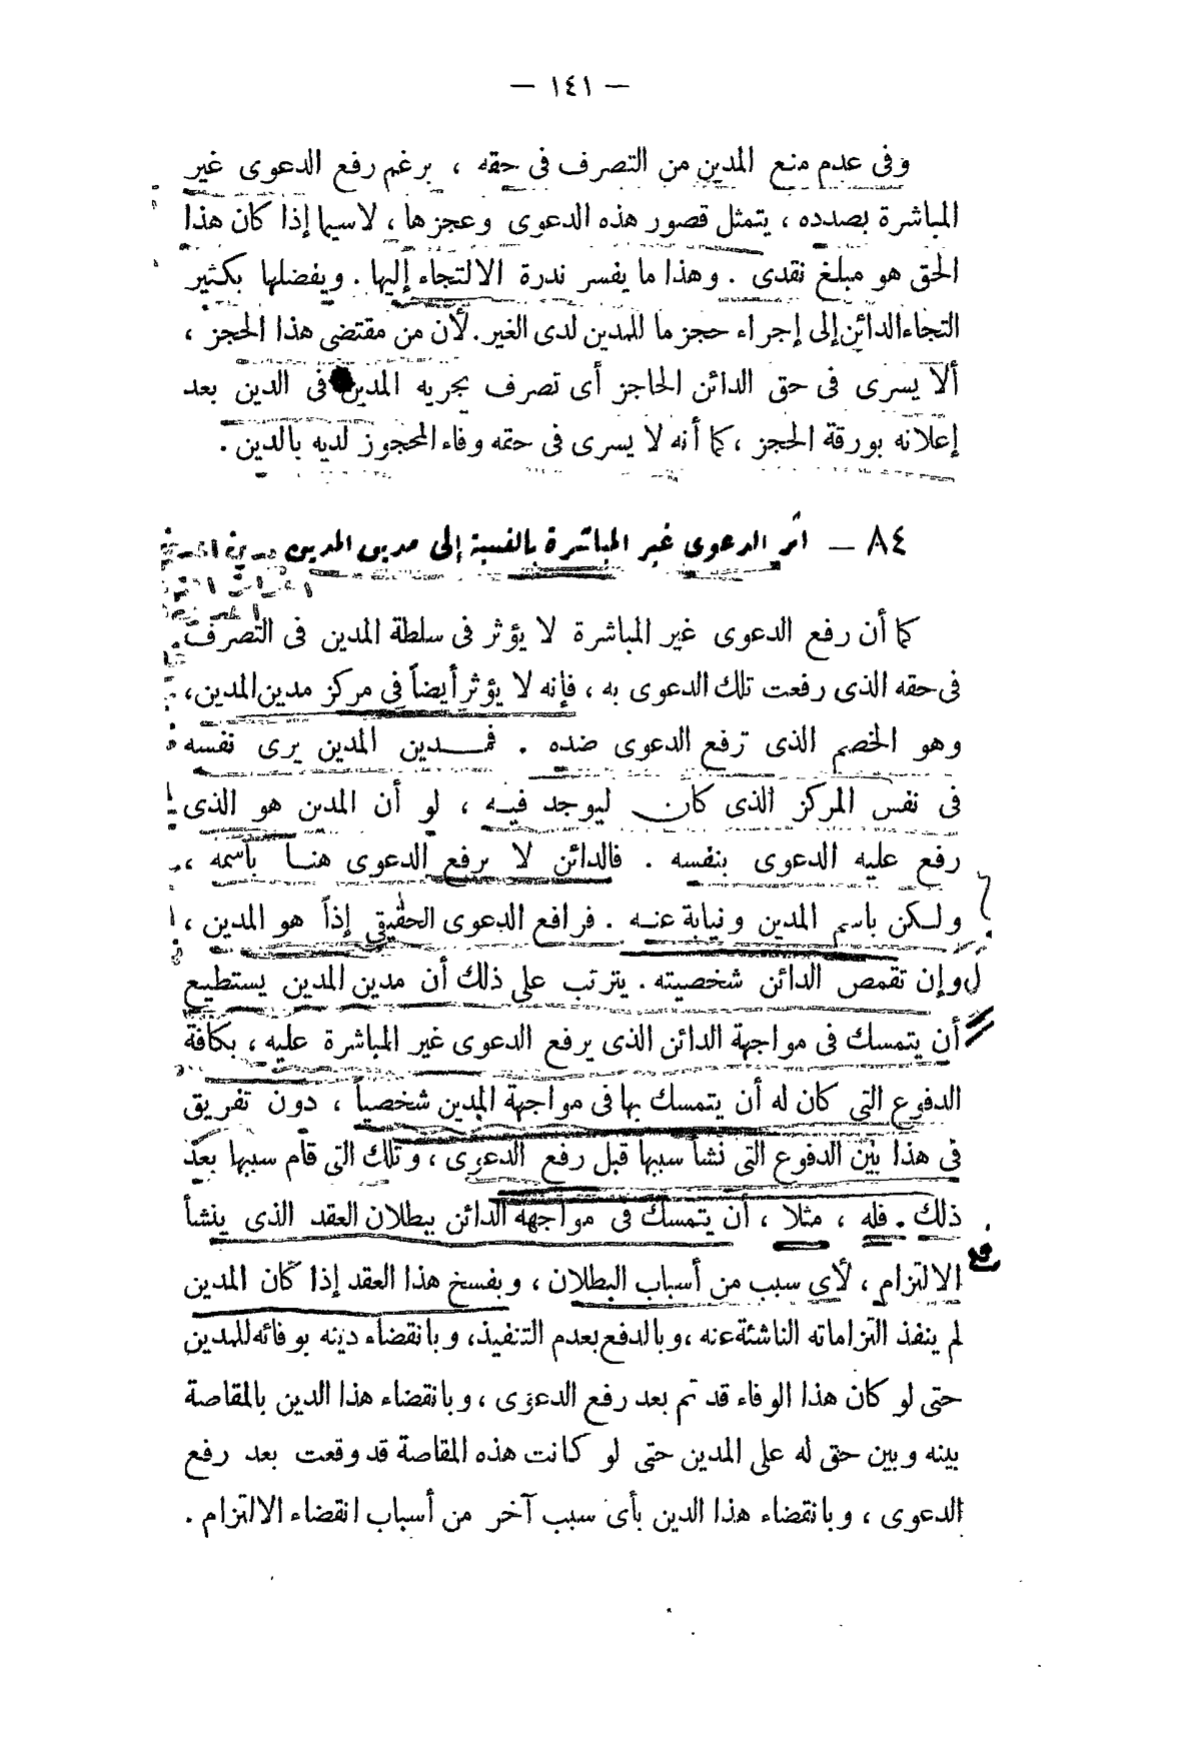 — ١٤١ —
وفى عدم منع المدين من التصرف فى حقه ، برغم رفع الدعوى غير
المباشرة بصدده ، يتمثل قصور هذه الدعوى وعجزها ، لاسيما إذا كان هذا
الحق هو مبلغ نقدى . وهذا ما يفسر ندرة الالتجاء إليها . ويفضلها بكثير
التجاء الدائن إلى إجراء حجز ما للمدين لدى الغير . لأن من مقتضى هذا الحجز ،
ألا يسرى فى حق الدائن الحاجز أى تصرف يجريه المدين فى الدين بعد
إعلانه بورقة الحجز ، كما أنه لا يسرى فى حقه وفاء المحجوز لديه بالدين .
٨٤ — أثر الدعوى غير المباشرة بالنسبة إلى مدين المدين
كما أن رفع الدعوى غير المباشرة لا يؤثر فى سلطة المدين فى التصرف
فى حقه الذى رفعت تلك الدعوى به ، فإنه لا يؤثر أيضاً فى مركز مدين المدين ،
وهو الخصم الذى ترفع الدعوى ضده . فمدين المدين يرى نفسه
فى نفس المركز الذى كان ليوجد فيه ، لو أن المدين هو الذى
رفع عليه الدعوى بنفسه . فالدائن لا يرفع الدعوى هنا باسمه ،
ولكن باسم المدين ونيابة عنه . فرافع الدعوى الحقيقى إذاً هو المدين ،
وإن تقمص الدائن شخصيته . يترتب على ذلك أن مدين المدين يستطيع
أن يتمسك فى مواجهة الدائن الذى يرفع الدعوى غير المباشرة عليه ، بكافة
الدفوع التى كان له أن يتمسك بها فى مواجهة المدين شخصياً ، دون تفريق
فى هذا بين الدفوع التى نشأ سببها قبل رفع الدعوى ، وتلك التى قام سببها بعد
ذلك . فله ، مثلا ، أن يتمسك فى مواجهة الدائن ببطلان العقد الذى ينشأ
الالتزام ، لأى سبب من أسباب البطلان ، وبفسخ هذا العقد إذا كان المدين
لم ينفذ التزاماته الناشئة عنه ، وبالدفع بعدم التنفيذ ، وبانقضاء دينه بوفائه للمدين
حتى لو كان هذا الوفاء قد تم بعد رفع الدعوى ، وبانقضاء هذا الدين بالمقاصة
بينه وبين حق له على المدين حتى لو كانت هذه المقاصة قد وقعت بعد رفع
الدعوى ، وبانقضاء هذا الدين بأى سبب آخر من أسباب انقضاء الالتزام .